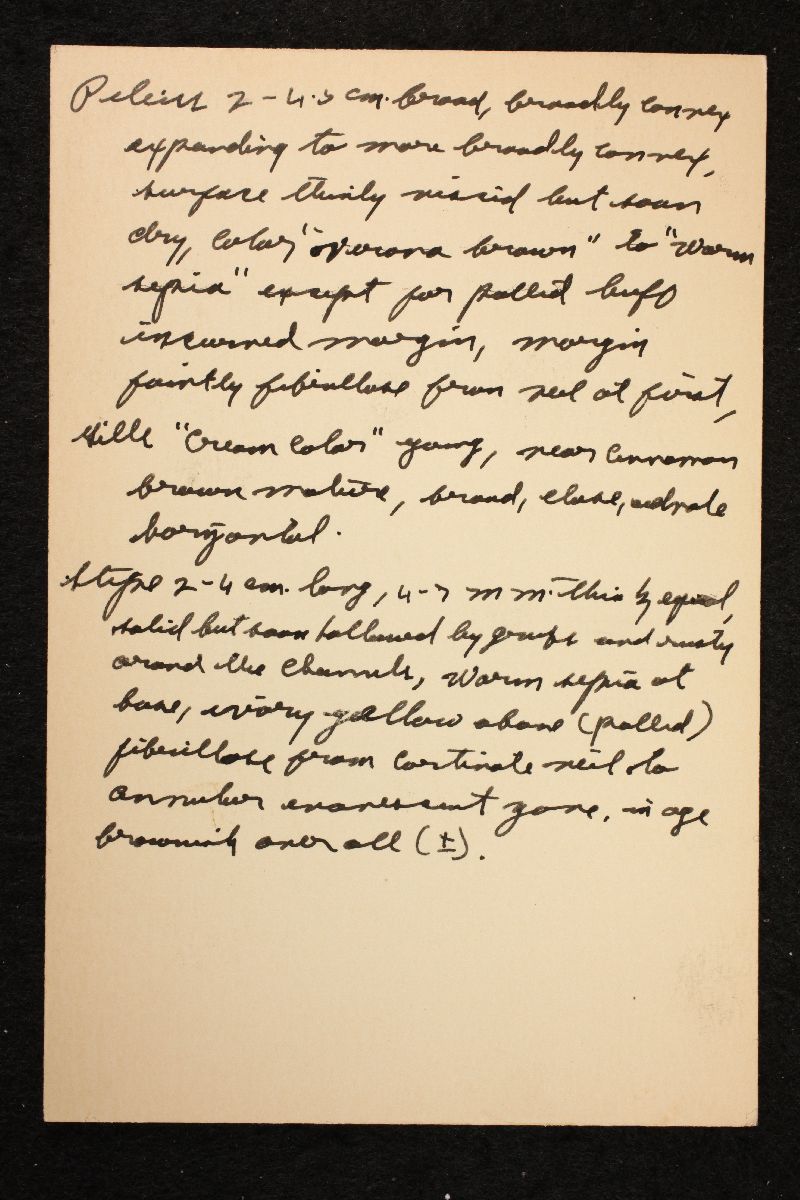 Pileus 2-4.5 cm. broad, broadly convex
expanding to more broadly convex,
surface thinly viscid but soon
dry, color "Verona brown" to "warm
sepia" except for pallid buff
incurved margin, margin
faintly fibrillose from veil at first,
Gills "Cream color" young, near cinnamon
brown mature, broad, close, adnate
horizontal.
Stipe 2-4 cm. long, 4-7 mm. thick, equal,
solid but soon hollowed by grubs and rusty
around the channels, warm sepia at
base, ivory yellow above (pallid)
fibrillose from cortinate veil to
annular evanescent zone, in age
brownish over all (±).